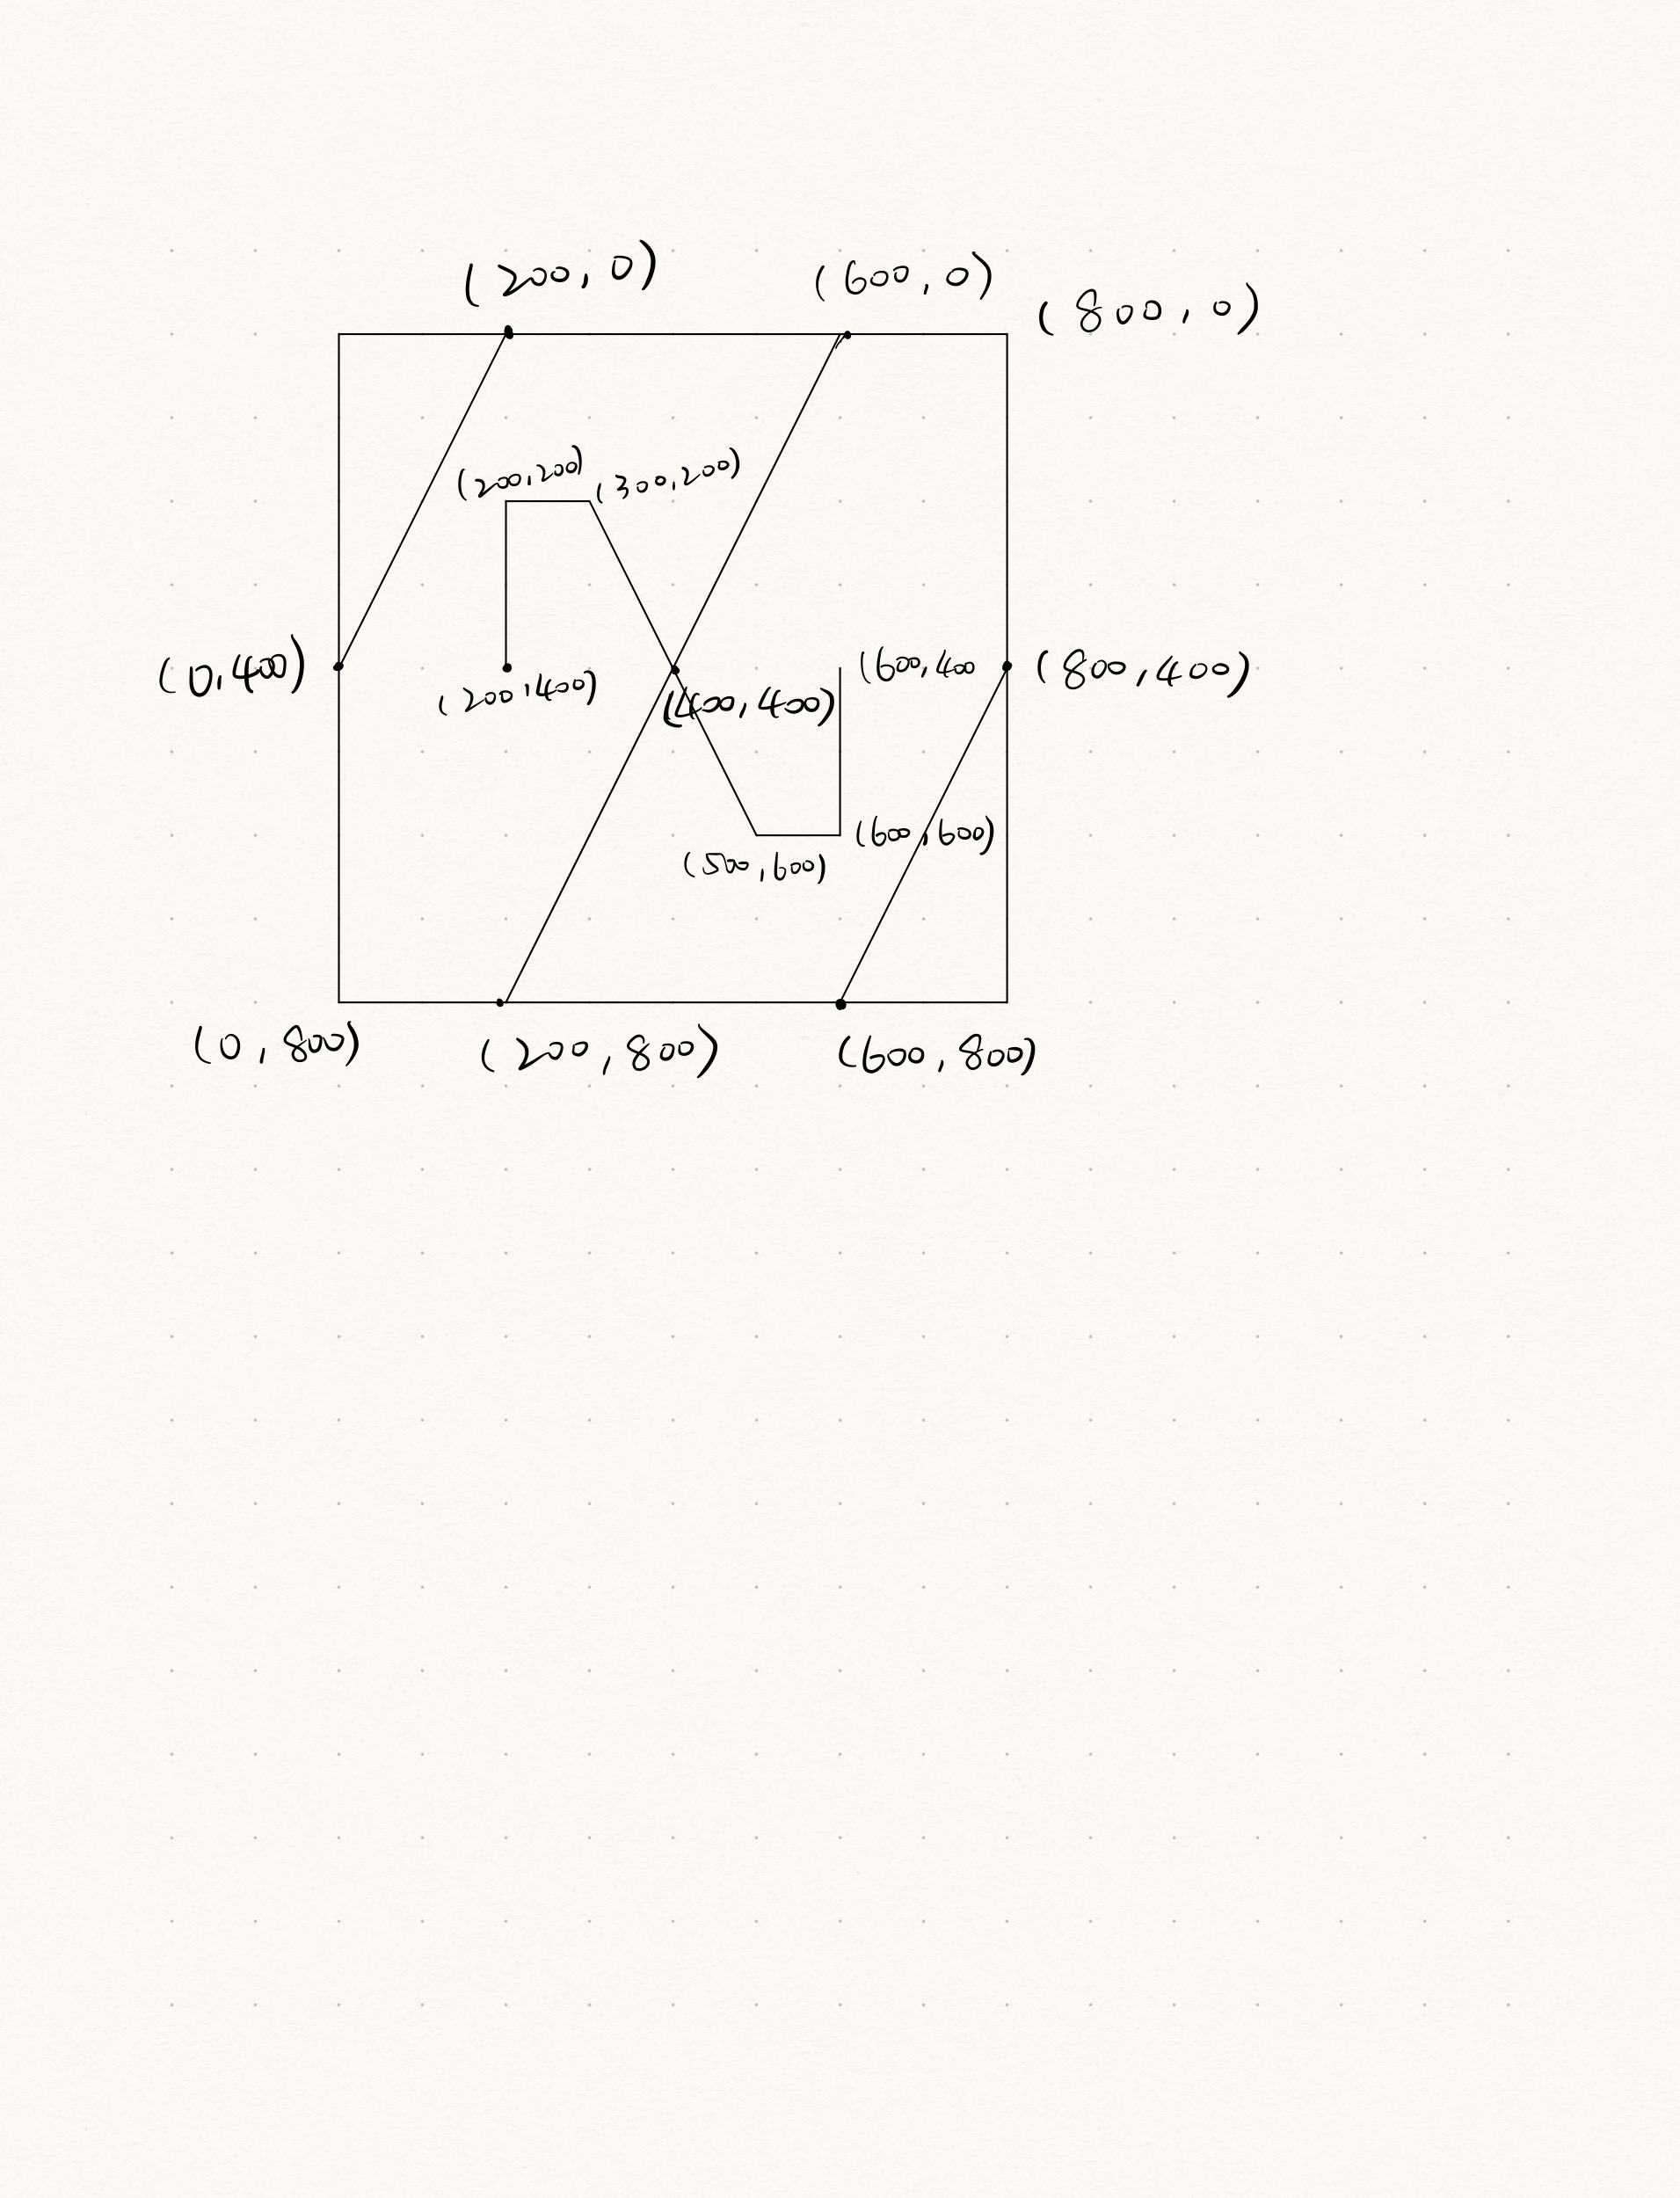 (200, 0)
(600, 0)
(800, 0)
(200,200)
(300,200)
(0,400)
(200,400)
(400,400)
(600,400
(800,400)
(600,600)
(500,600)
(0,800)
(200,800)
(600,800)